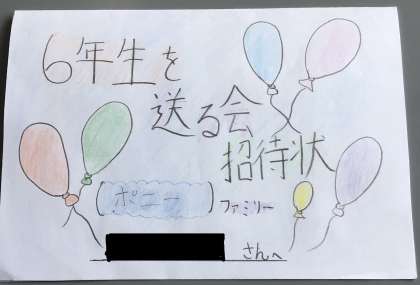 6年生を
送る会
招待状
ポニーファミリー
さんへ